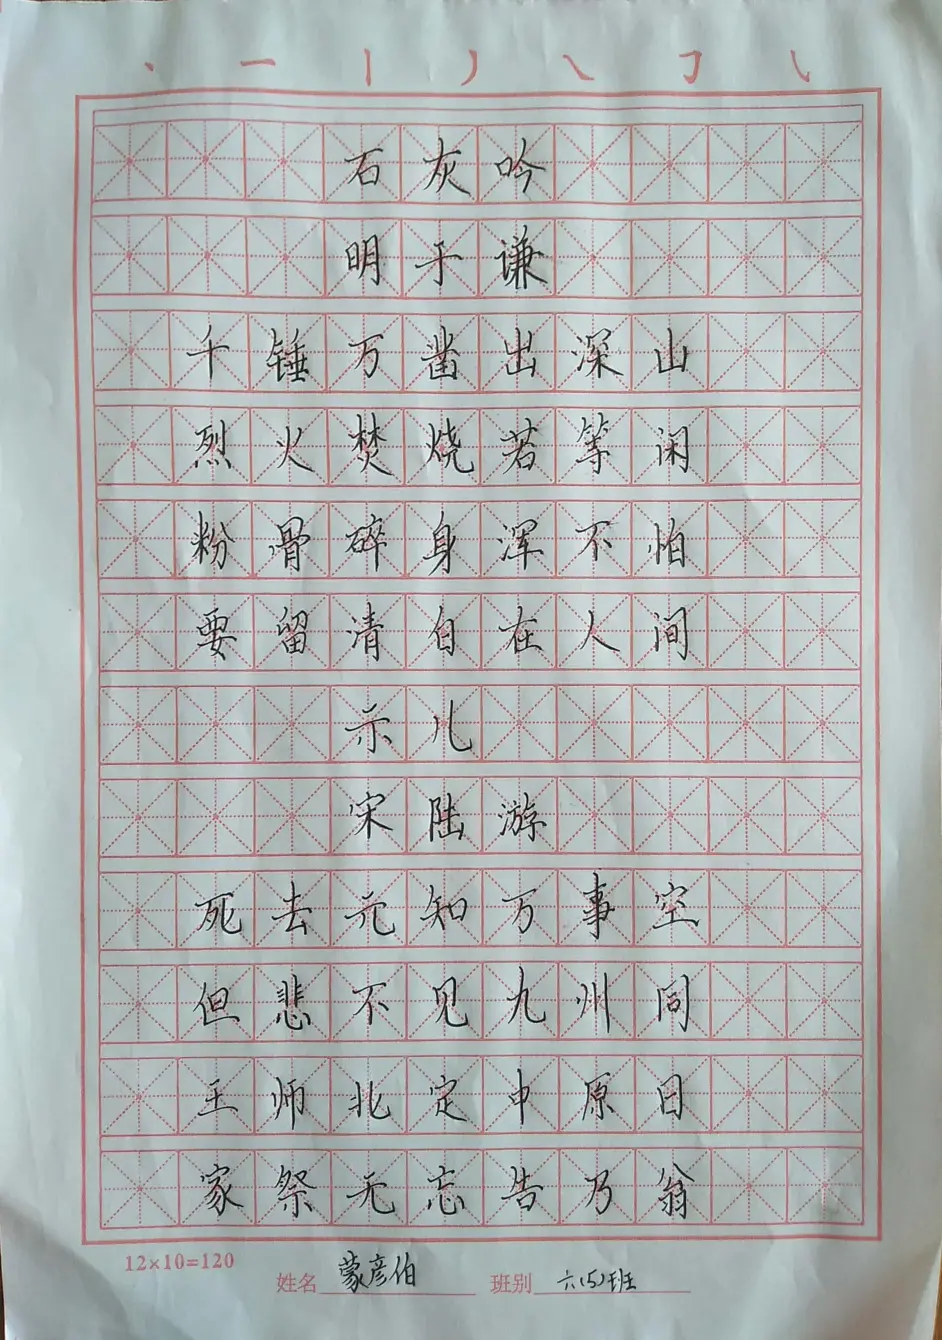 石灰吟
明于谦
千锤万凿出深山
烈火焚烧若等闲
粉骨碎身浑不怕
要留清白在人间
示儿
宋陆游
死去元知万事空
但悲不见九州同
王师北定中原日
家祭无忘告乃翁
12×10=120
姓名 蒙彦伯 班别 六(5)班